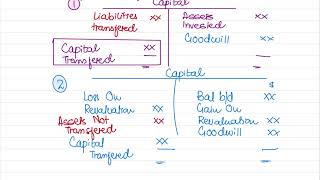 ① Capital
Liabilities xx Assets xx
transfered Invested
Capital xx Goodwill xx
Transfered
② Capital
$
Loss On Bal b/d xx
Revaluation xx Gain On
Assets Not xx Revaluation xx
Transfered Goodwill xx
Capital xx
Tranfered